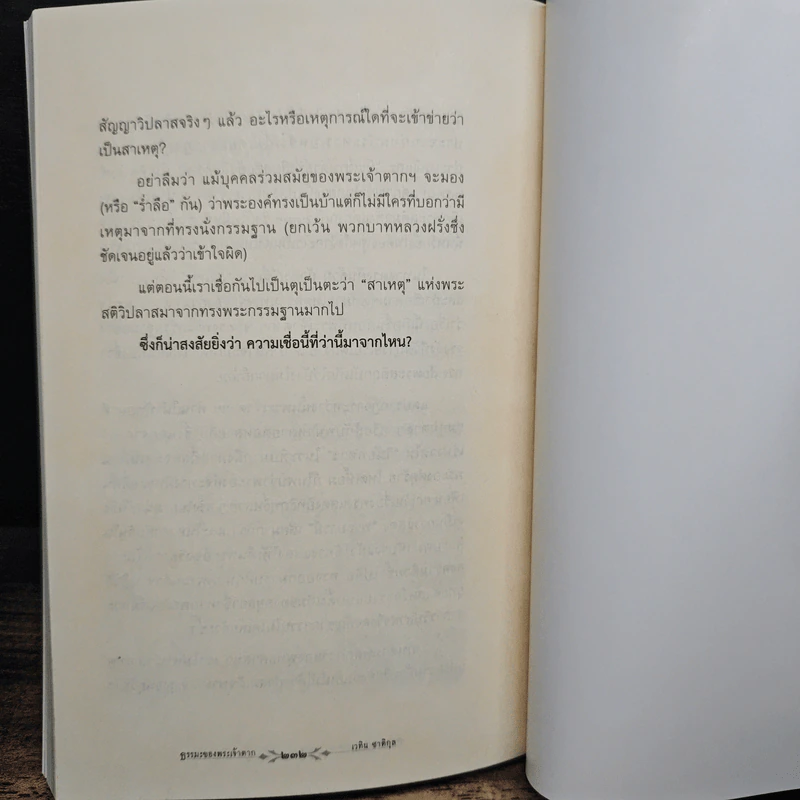 สัญญาวิปลาสจริงๆ แล้ว อะไรหรือเหตุการณ์ใดที่จะเข้าข่ายว่า
เป็นสาเหตุ?
อย่าลืมว่า แม้บุคคลร่วมสมัยของพระเจ้าตากฯ จะมอง
(หรือ “ร่ำลือ” กัน) ว่าพระองค์ทรงเป็นบ้าแต่ก็ไม่มีใครที่บอกว่ามี
เหตุมาจากที่ทรงนั่งกรรมฐาน (ยกเว้น พวกบาทหลวงฝรั่งซึ่ง
ชัดเจนอยู่แล้วว่าเข้าใจผิด)
แต่ตอนนี้เราเชื่อกันไปเป็นตุเป็นตะว่า “สาเหตุ” แห่งพระ
สติวิปลาสมาจากทรงพระกรรมฐานมากไป
ซึ่งก็น่าสงสัยยิ่งว่า ความเชื่อนี้ที่ว่านี้มาจากไหน?
ธรรมะของพระเจ้าตาก ๒๓๒ เวทิน ชาติกุล